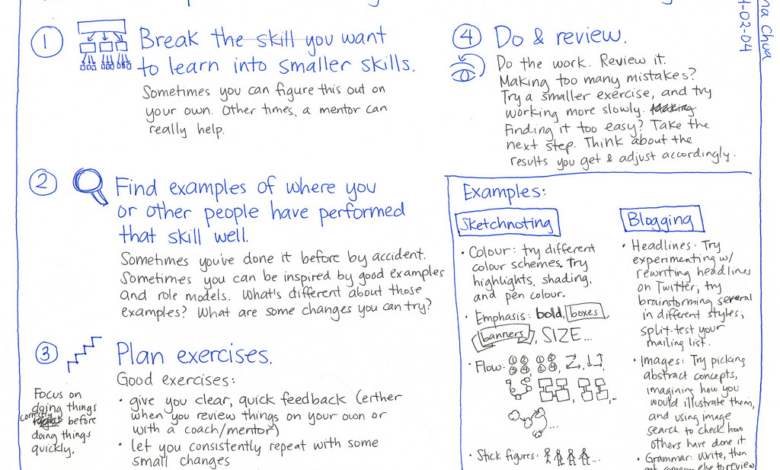 1
Break the skill you want
to learn into smaller skills.
Sometimes you can figure this out on
your own. Other times, a mentor can
really help.
2
Find examples of where you
or other people have performed
that skill well.
Sometimes you've done it before by accident.
Sometimes you can be inspired by good examples
and role models. What's different about those
examples? What are some changes you can try?
3
Plan exercises.
Good exercises:
• give you clear, quick feedback (either
when you review things on your own or
with a coach/mentor)
• let you consistently repeat with some
small changes
Focus on
doing things
correctly before
doing things
quickly.
4
Do & review.
Do the work. Review it.
Making too many mistakes?
Try a smaller exercise, and try
working more slowly.
Finding it too easy? Take the
next step. Think about the
results you get & adjust accordingly.
Examples:
Sketchnoting
• Colour: try different
colour schemes. Try
highlights, shading,
and pen colour.
• Emphasis: bold, boxes,
banners, SIZE...
• Flow:
• Stick figures:
Blogging
• Headlines: Try
experimenting w/
rewriting headlines
on Twitter, try
brainstorming several
in different styles,
split-test your
mailing list.
• Images: Try picking
abstract concepts,
imagining how you
would illustrate them,
and using image
search to check how
others have done it
• Grammar: Write, then
Chua
-02-04